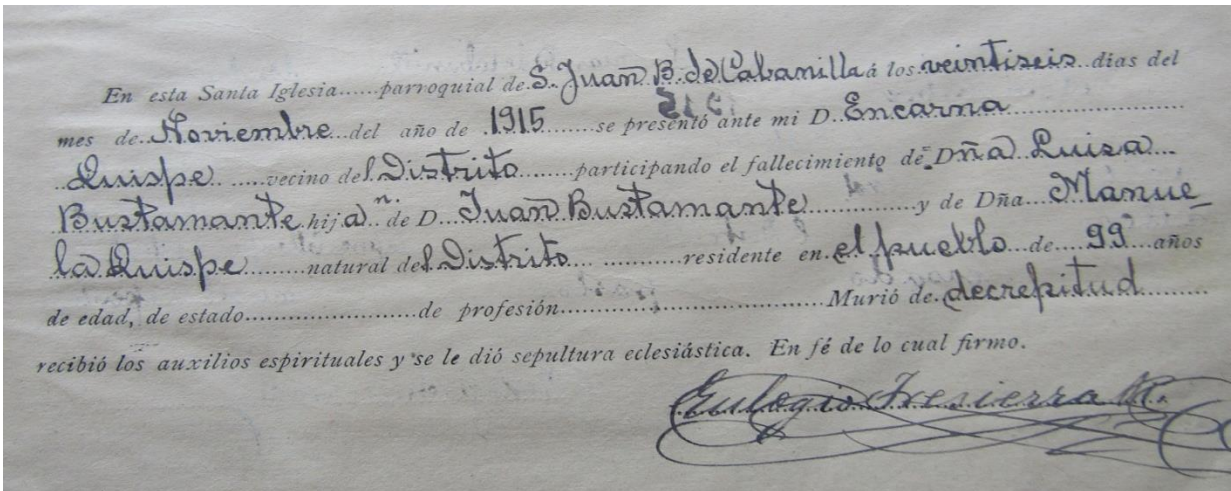 En esta Santa Iglesia......parroquial de S. Juan B. de Cabanilla á los veintiseis días del
mes de Noviembre del año de 1915 se presentó ante mi D. Encarna
Quispe vecino del Distrito participando el fallecimiento de Dña Luisa
Bustamante hija n. de D. Juan Bustamante y de Dña Manue_
la Quispe natural del Distrito residente en el pueblo de 99 años
de edad, de estado de profesión Murió de decrepitud
recibió los auxilios espirituales y se le dió sepultura eclesiástica. En fé de lo cual firmo.
Eulogio